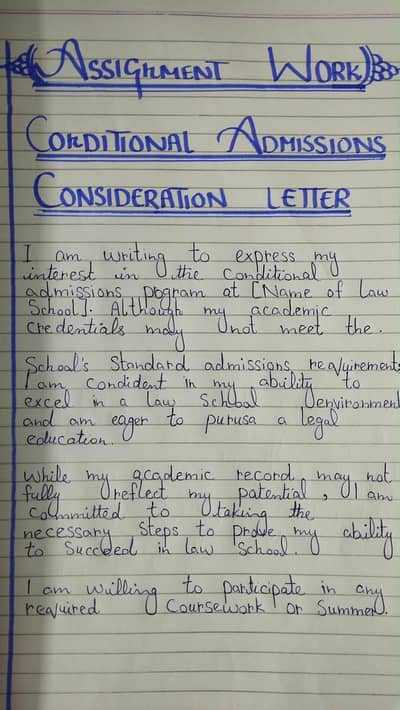 Assignment Work
Conditional Admissions
Consideration Letter
I am writing to express my
interest in the conditional
admissions pogram at [Name of Law
School]. Although my academic
credentials may not meet the.
School's Standard admissions reayuirements
I am condident in my ability to
excel in a law School environment
and am eager to purusa a legal
education.
While my academic record may not
fully reflect my patential, I am
committed to taking the
necessary steps to prove my ability
to Succeed in law School.
I am willing to participate in any
reayuired Coursework or Summer.